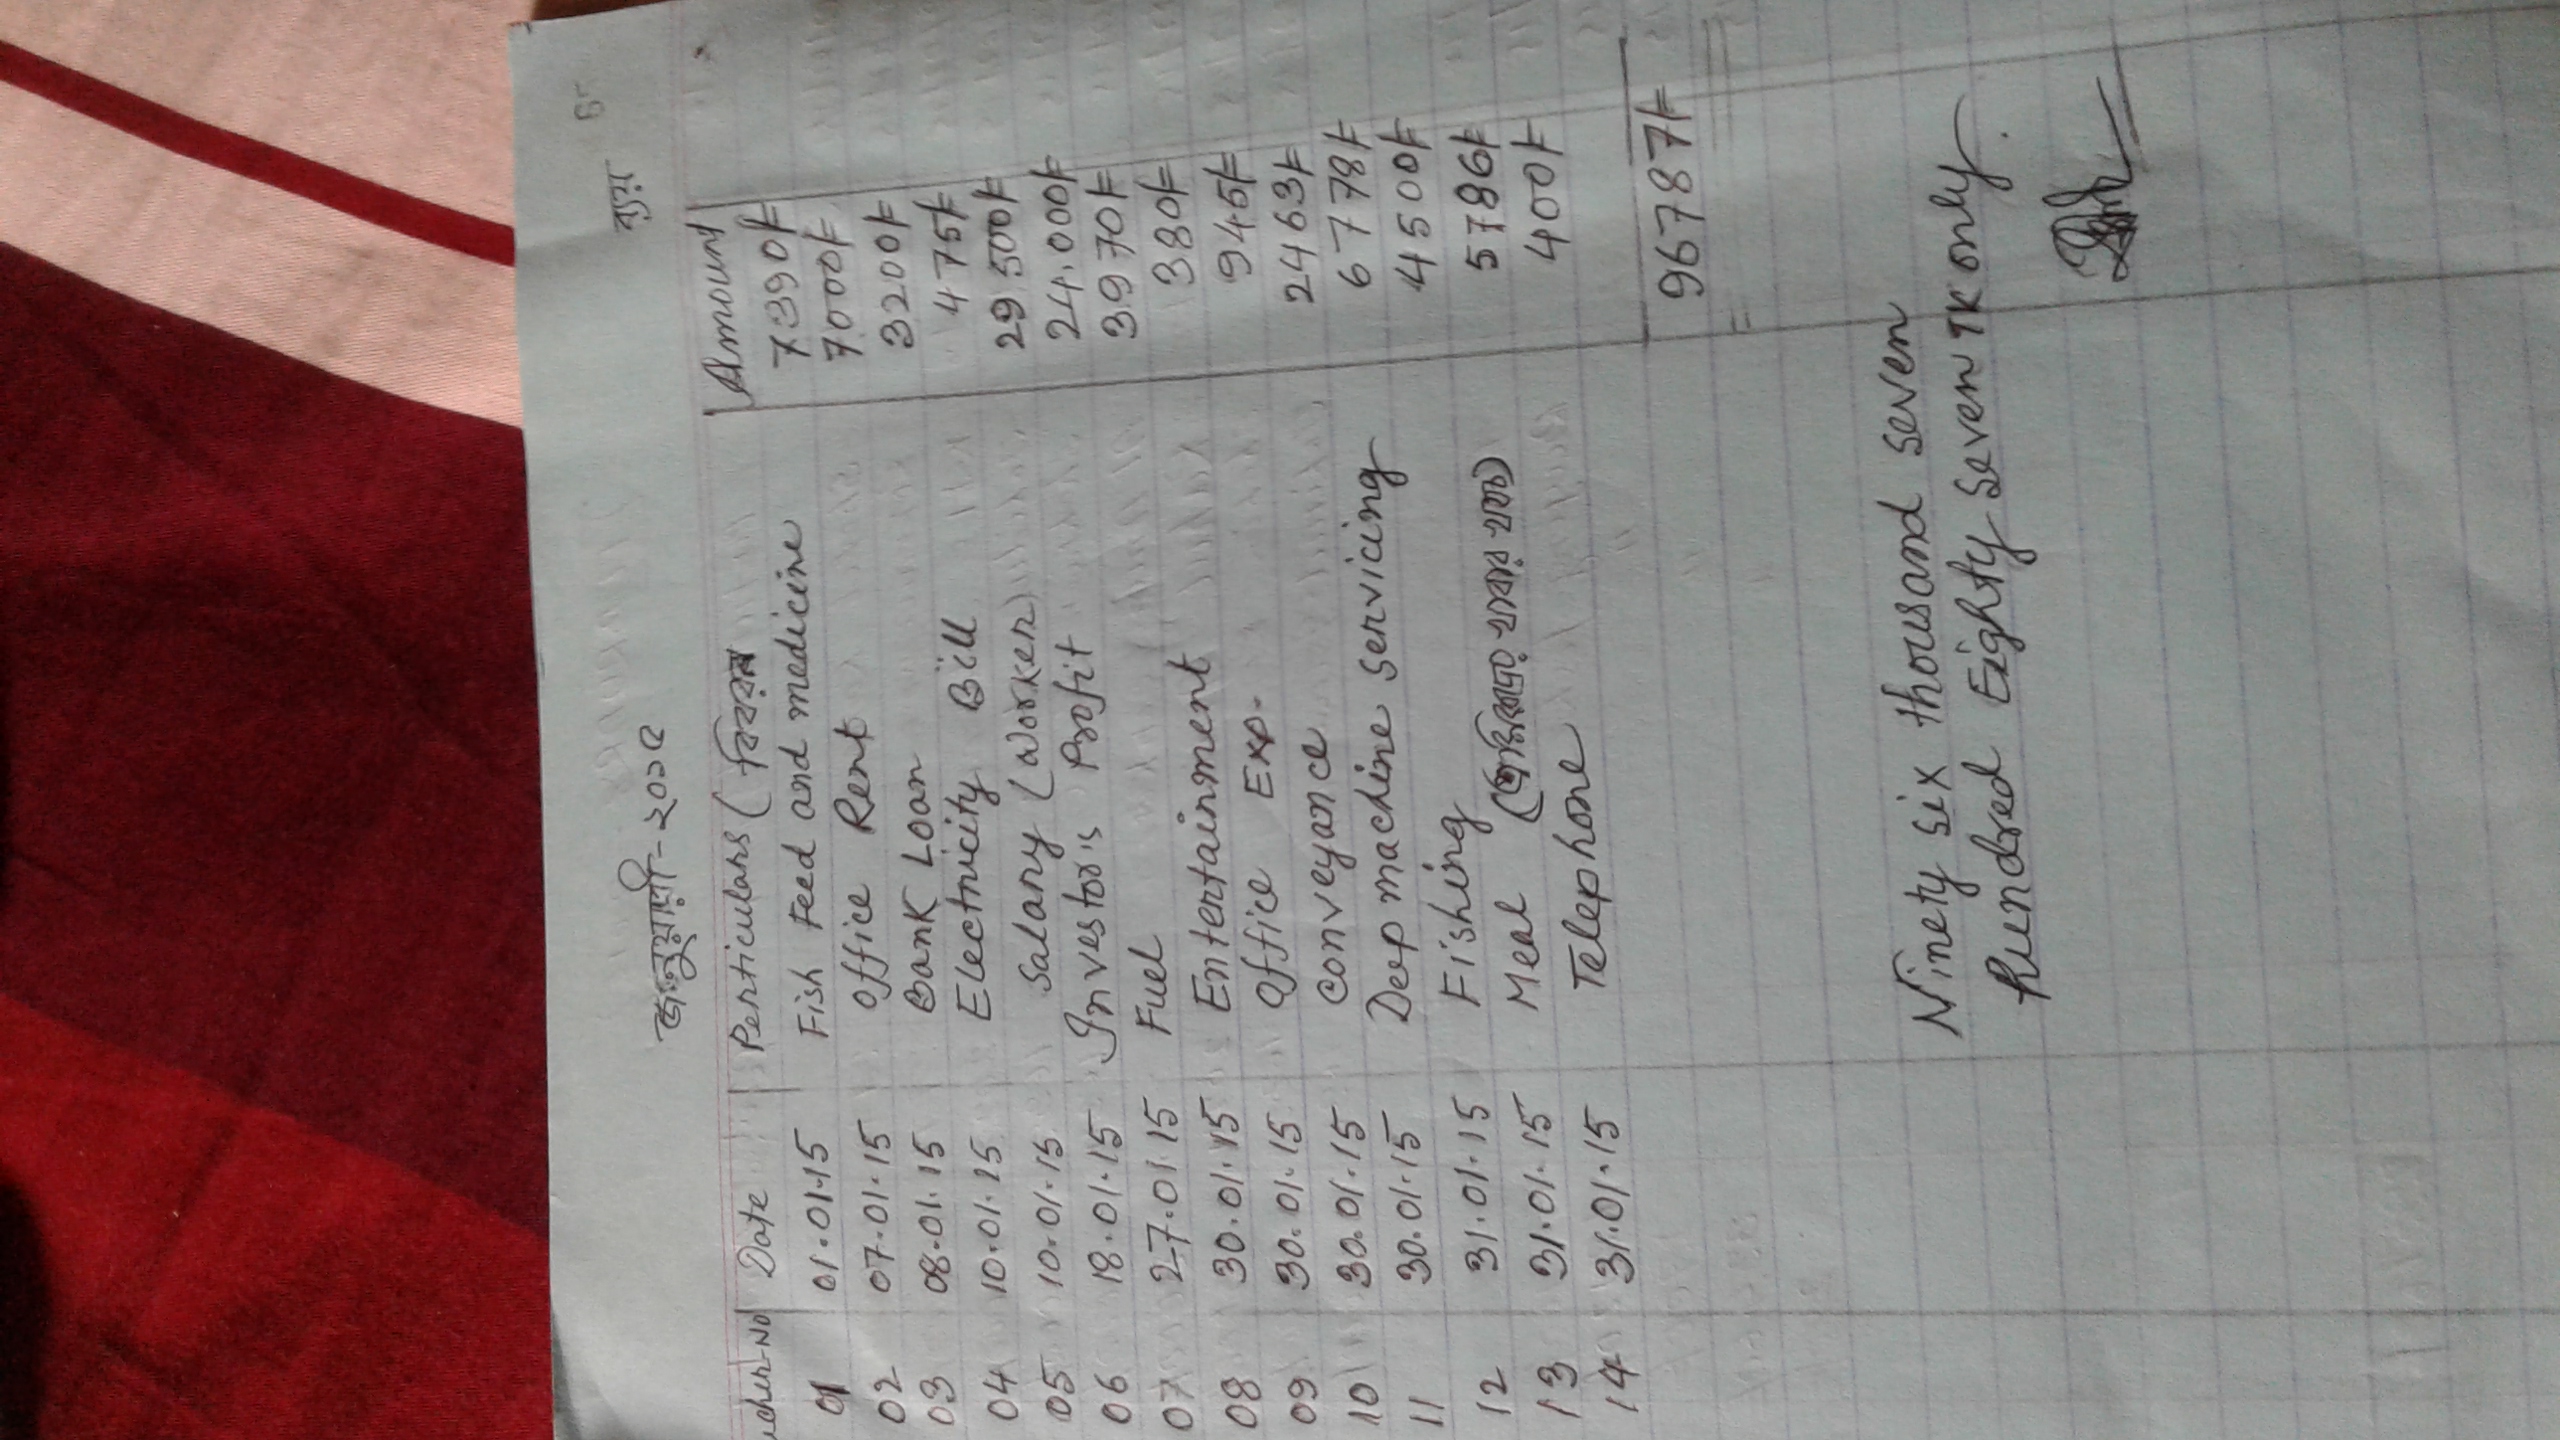 জানুয়ারী-২০১৫ ব্যয়
ucher-No Date Perticulars (বিবরন Amount
01 01.01.15 Fish Feed and medicine 7390/=
02 07.01.15 office Rent 7000/=
03 08.01.15 Bank Loan 3200/=
04 10.01.15 Electricity Bill 475/=
05 10.01.15 Salary (Worker) 29500/=
06 18.01.15 Investor's Profit 24,000/=
07 27.01.15 Fuel 3970/=
08 30.01.15 Entertainment 380/=
09 30.01.15 office Exp. 945/=
10 30.01.15 conveyance 2463/=
11 30.01.15 Deep machine servicing 6778/=
12 31.01.15 Fishing 4500/=
13 31.01.15 Meal (শ্রমিকদের খাবার খরচ) 5786/=
14 31.01.15 Telephone 400/=
96787/=
Ninety six thousand seven
hundred Eighty seven TK only.